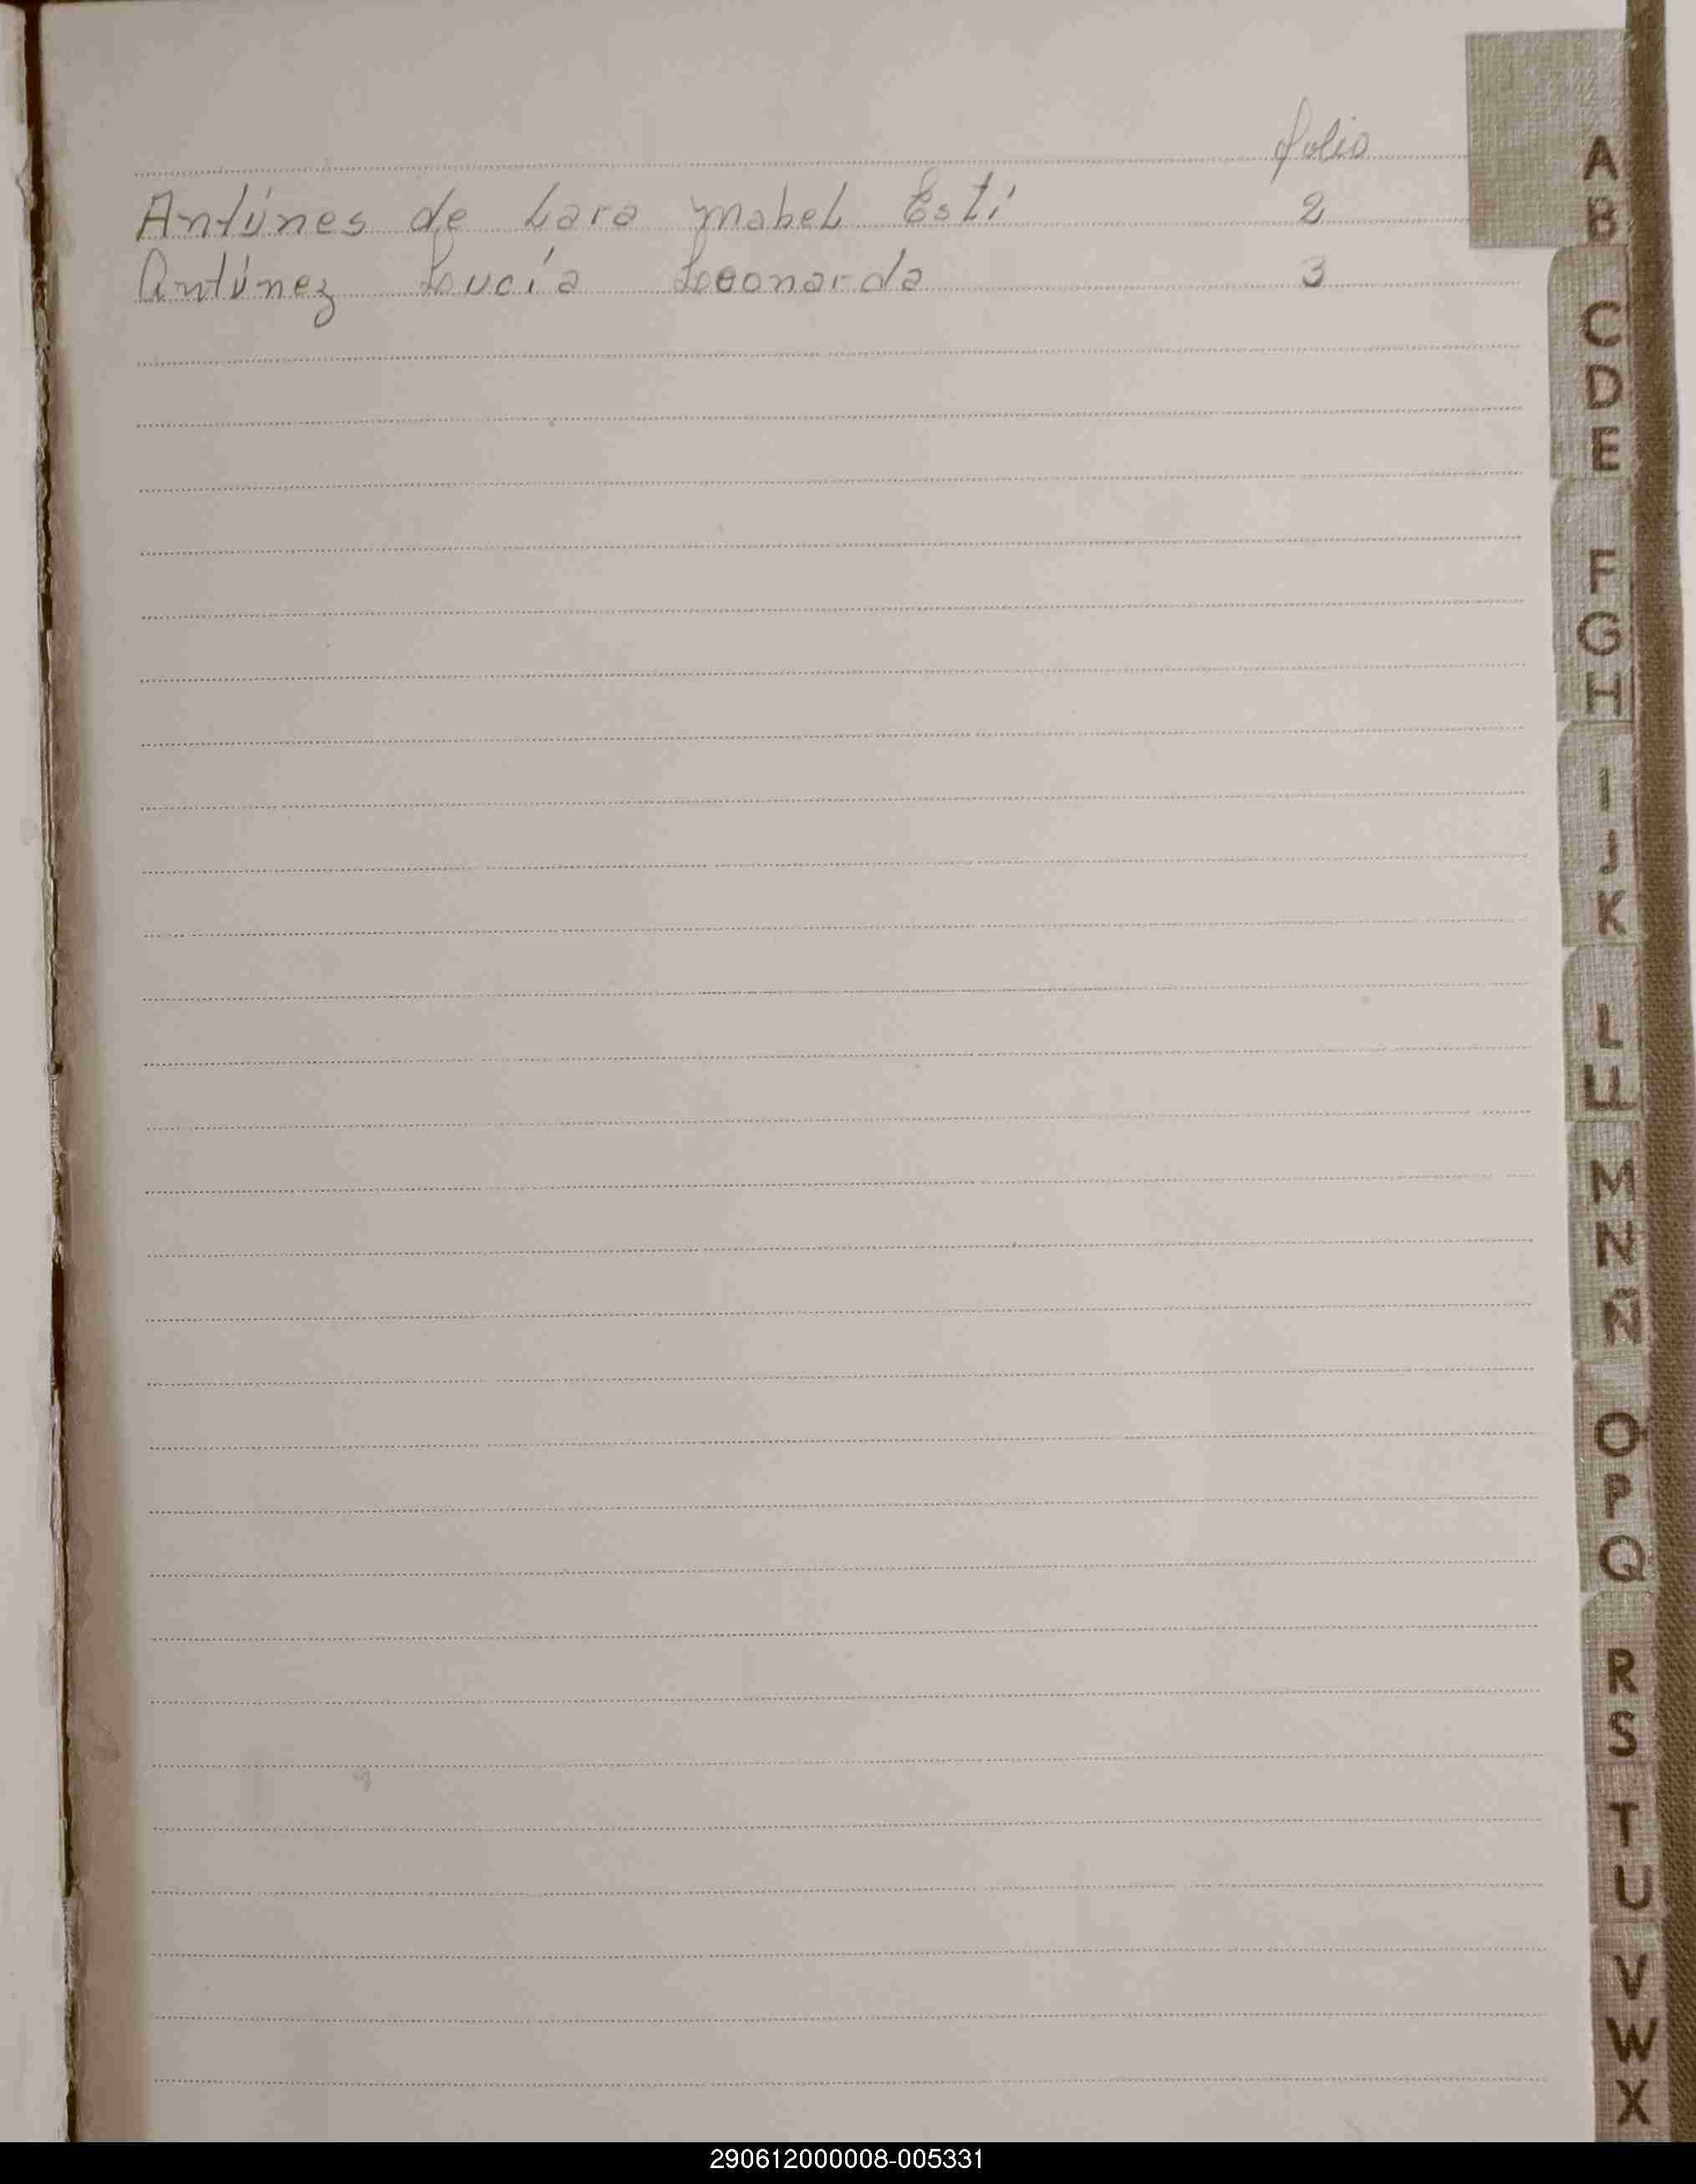 folio
Antúnes de Lara Mabel Esti 2
Antúnez Lucía Leonarda 3
A
B
C
D
E
F
G
H
I
J
K
L
LL
M
N
Ñ
O
P
Q
R
S
T
U
V
W
X
290612000008-005331